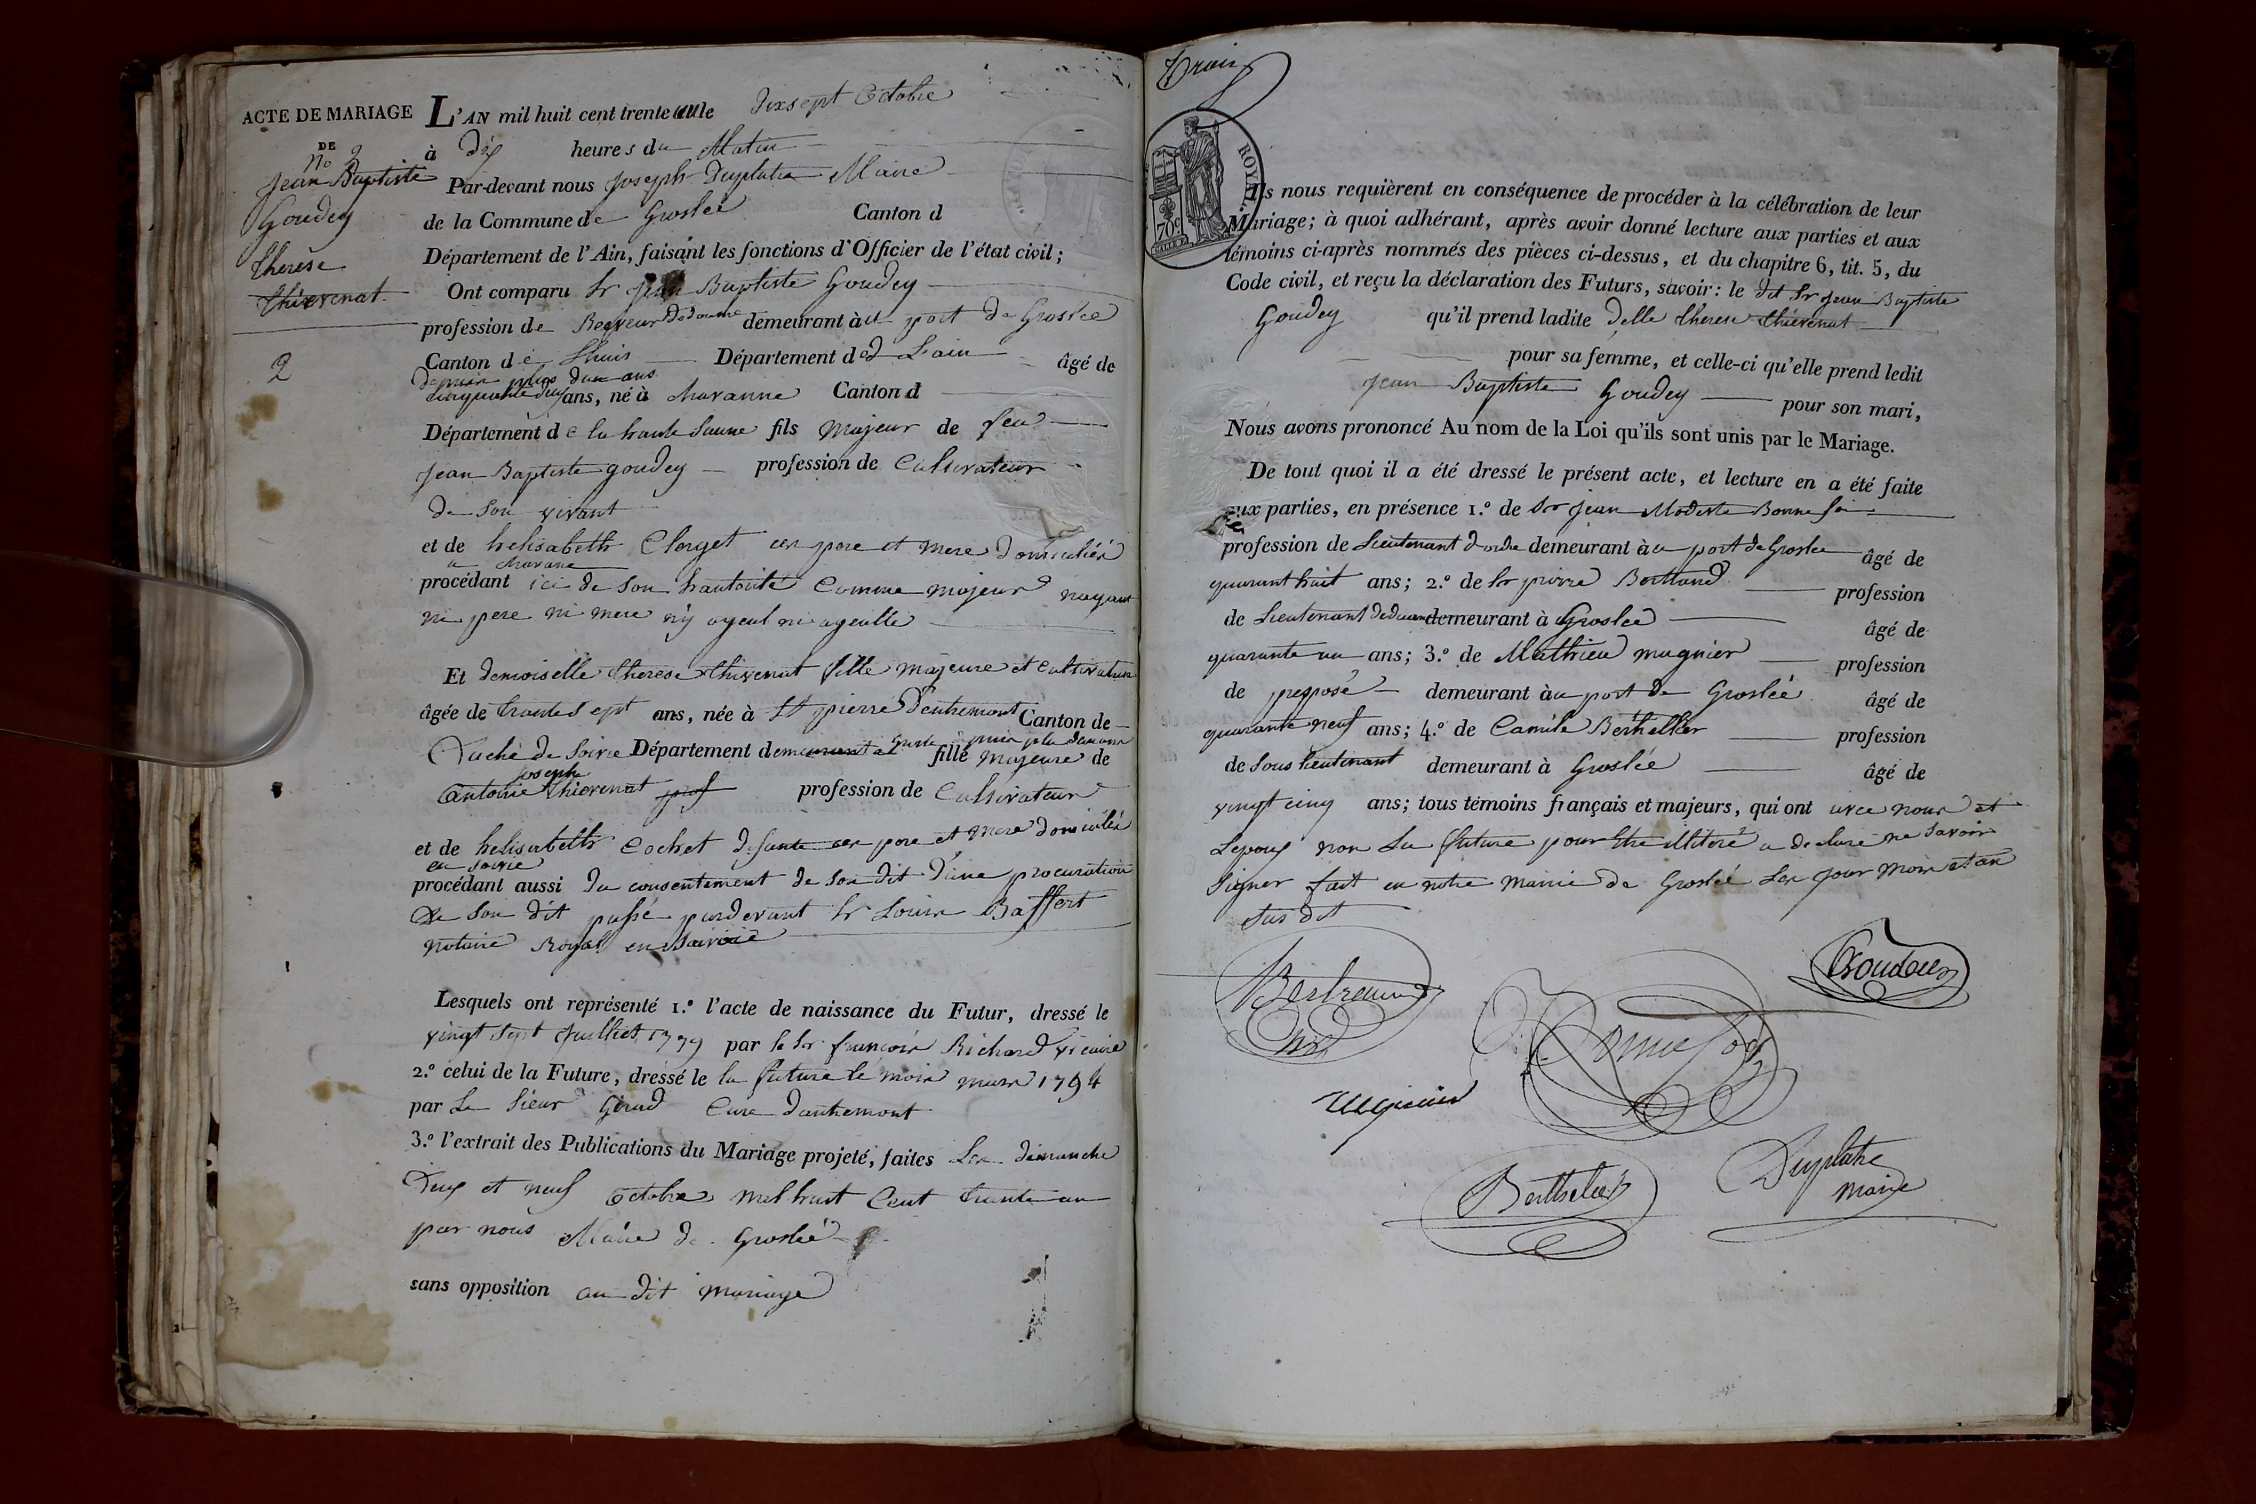 ACTE DE MARIAGE
DE
No 2
Jean Baptiste
Goudey
therese
thievenat
2
L'AN mil huit cent trente un le dixsept Octobre
à dix heures du Matin
Par-devant nous Joseph Duplatre Maire
de la Commune de Groslée Canton d
Département de l'Ain, faisant les fonctions d'Officier de l'état civil;
Ont comparu Sr Jean Baptiste Goudey
profession de Receveur dedouane demeurant à u port de Groslée
Canton de Lhuis Département de d L'ain âgé de
depuis plus dun ans
cinquante deux ans, né à Charanne Canton d
Département de la haute Saune fils Majeur de feu
Jean Baptiste goudey profession de Cultivateur
de son vivant
et de helisabeth Clerget ses pere et mere domiciliés
a Charane
procédant ici de son hautorité Comme majeur nayant
ni pere ni mere ny ayeul ni ayeulle
Et demoiselle therese thievenat fille majeure et Cultivatrice
âgée de trente sept ans, née à St pierre d'entremont Canton de
Duché de Savoie Département fille majeure de
joseph
antoine thievenat profession de Cultivateur
et de helisabeth Cochet defunte ses pere et mere domiciliés
en Savoie
procédant aussi du consentement de son dit d'une procuration
de son dit passé pardevant Sr Louis Baffert
notaire Royal en Savoie
Lesquels ont représenté 1.º l'acte de naissance du Futur, dressé le
vingt sept Juilliet 1779 par le Sr françois Richard vicaire
2.º celui de la Future, dressé le la future le mois mars 1794
par Le Sieur Girud Cure dantremont
3.º l'extrait des Publications du Mariage projeté, faites Les dimanche
Deux et neuf Octobre mil huit Cent trente un
par nous Maire de Groslée
sans opposition au dit mariage
Trois
ROYAL
70 c.
Ils nous requièrent en conséquence de procéder à la célébration de leur
Mariage; à quoi adhérant, après avoir donné lecture aux parties et aux
témoins ci-après nommés des pièces ci-dessus, et du chapitre 6, tit. 5, du
Code civil, et reçu la déclaration des Futurs, savoir: le dit Sr Jean Baptiste
Goudey qu'il prend ladite delle therese thievenat
pour sa femme, et celle-ci qu'elle prend ledit
Jean Baptiste Goudey pour son mari,
Nous avons prononcé Au nom de la Loi qu'ils sont unis par le Mariage.
De tout quoi il a été dressé le présent acte, et lecture en a été faite
aux parties, en présence 1.º de Sr Jean Modeste Bonnefoi
profession de Lieutenant d'ordre demeurant à u port de Groslee âgé de
quarant huit ans; 2.º de Sr pierre Bertrand profession
de Lieutenant dedouane demeurant à Groslée âgé de
quarante un ans; 3.º de Mathieu mugnier profession
de preposé demeurant à u port de Groslée âgé de
quarante neuf ans; 4.º de Camile Berthellier profession
de Sous lieutenant demeurant à Groslée âgé de
vingt cinq ans; tous témoins français et majeurs, qui ont avec nous et
Lepoux non La future pour etre illiteré a declaré ne savoir
signer fait en notre Mairie de Groslée Les jour mois et an
sus dit
Bertrand
Goudey
Bonnefoy
Mugnier
Berthelier
Duplatre
maire